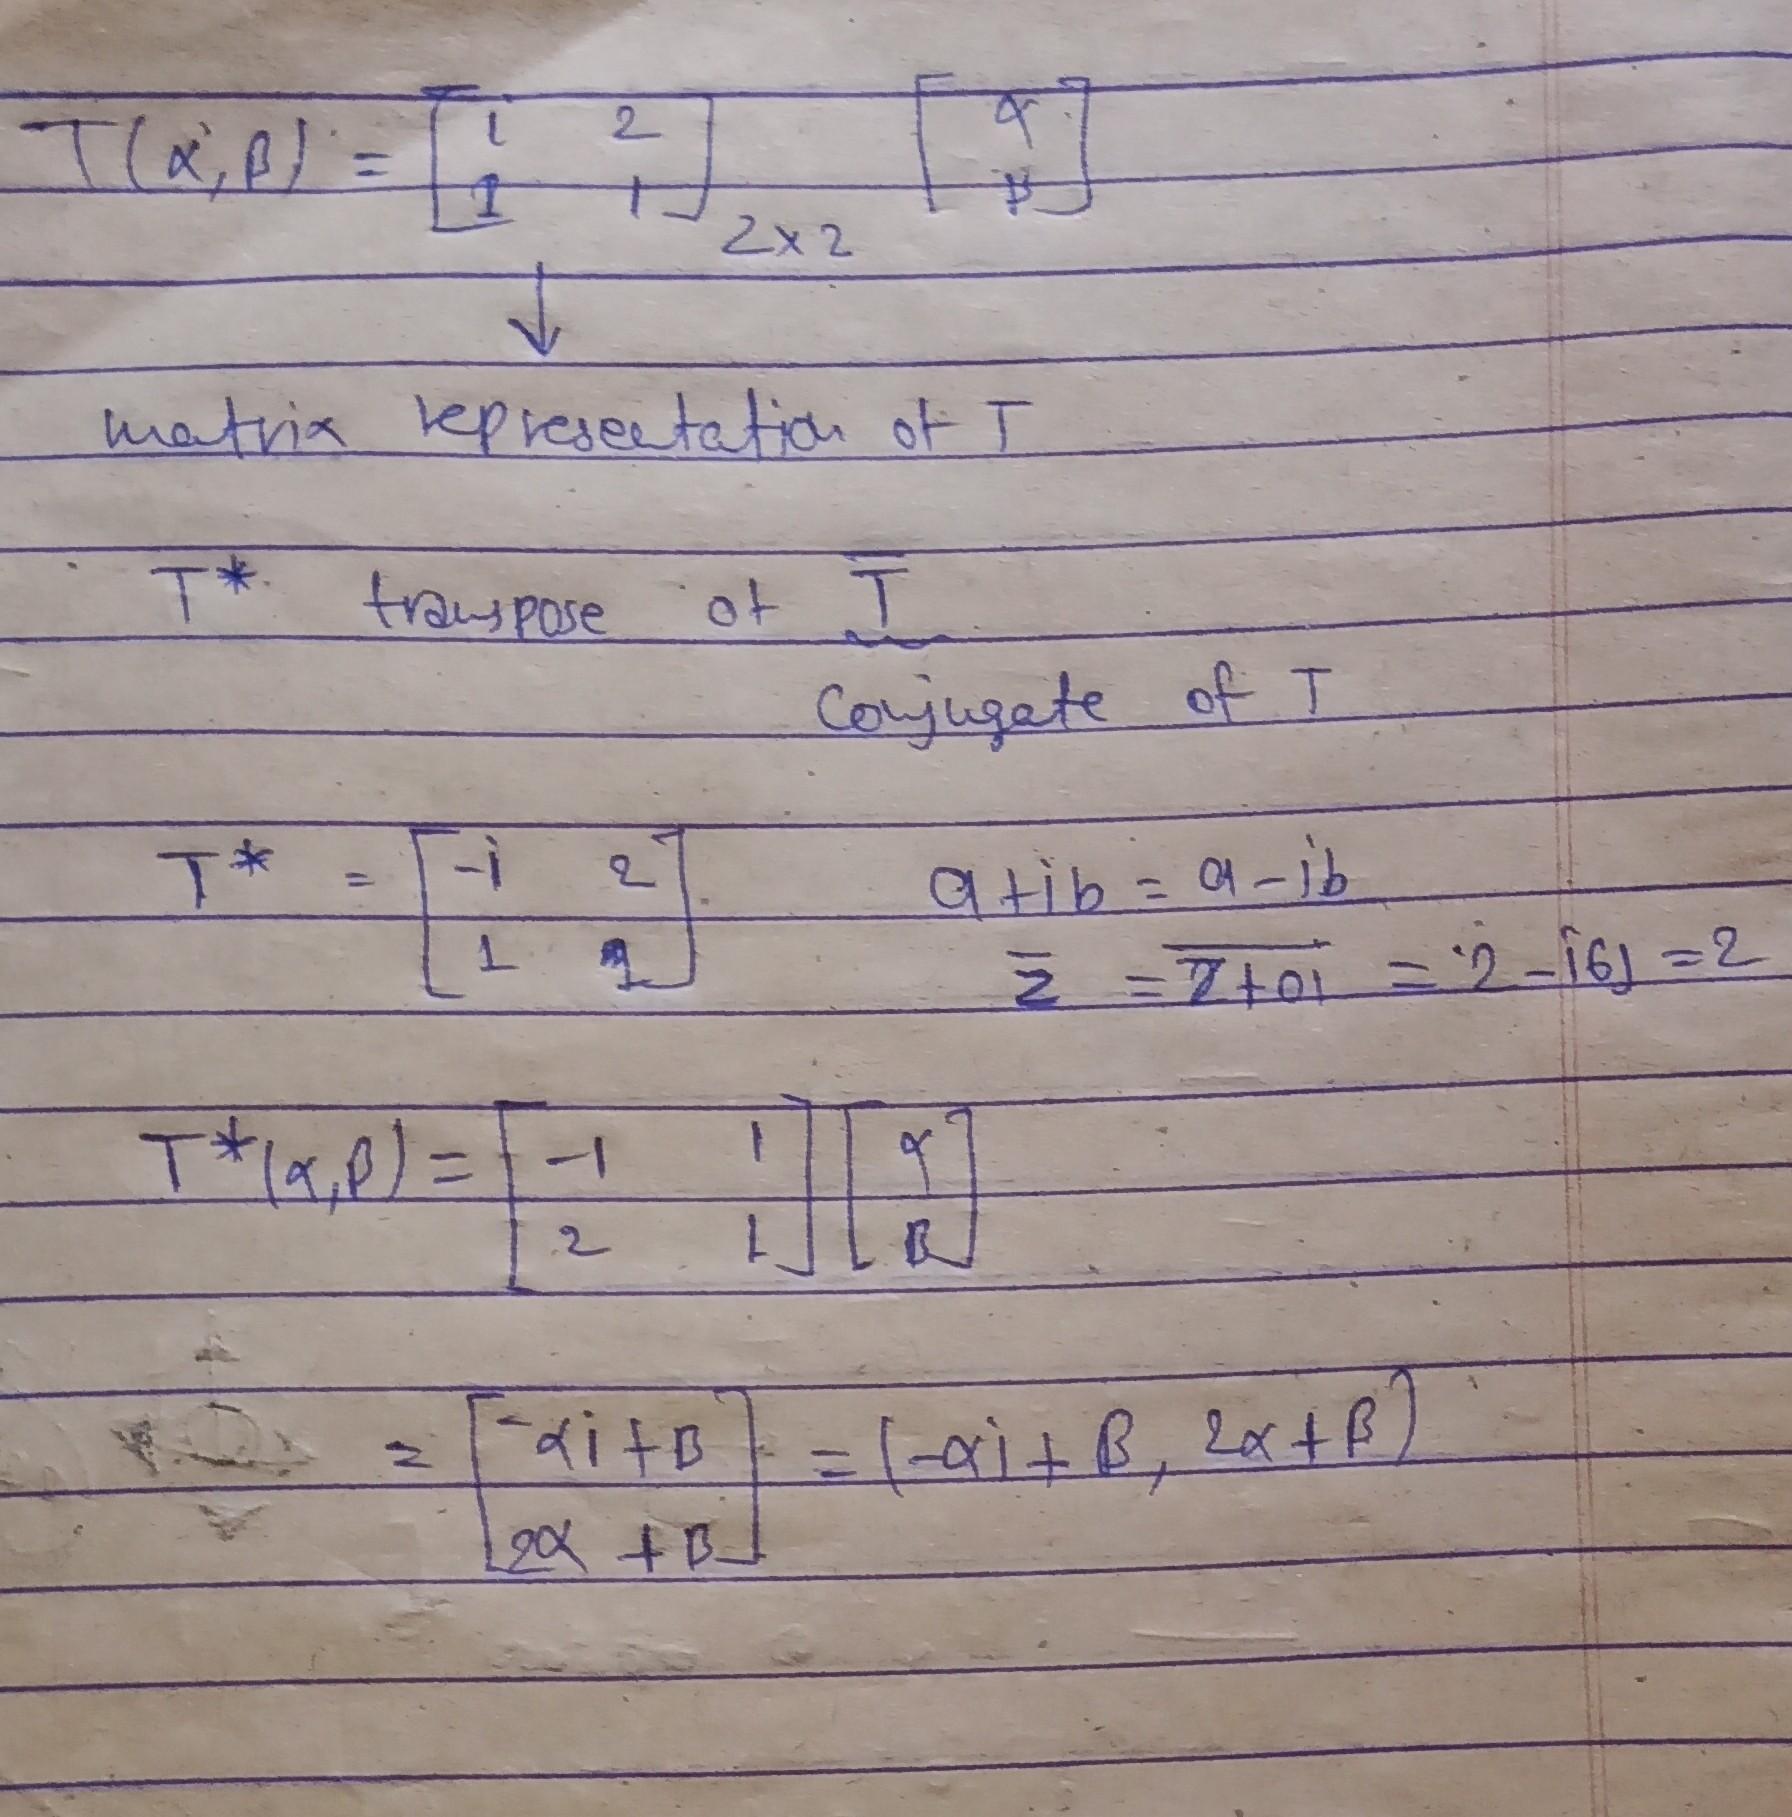 T(α,β) = [ i 2 [ α
1 1 ] 2x2 β ]
↓
matrix representation of T
T* transpose of T̅
Conjugate of T
T* = [ -i 2 a+ib = a-ib
1 1 ] z̅ = \overline{2+0i} = 2-i(0) = 2
T*(α,β) = [ -i 1 ] [ α
2 1 β ]
= [ -αi+β ] = (-αi+β, 2α+β)
2α+β